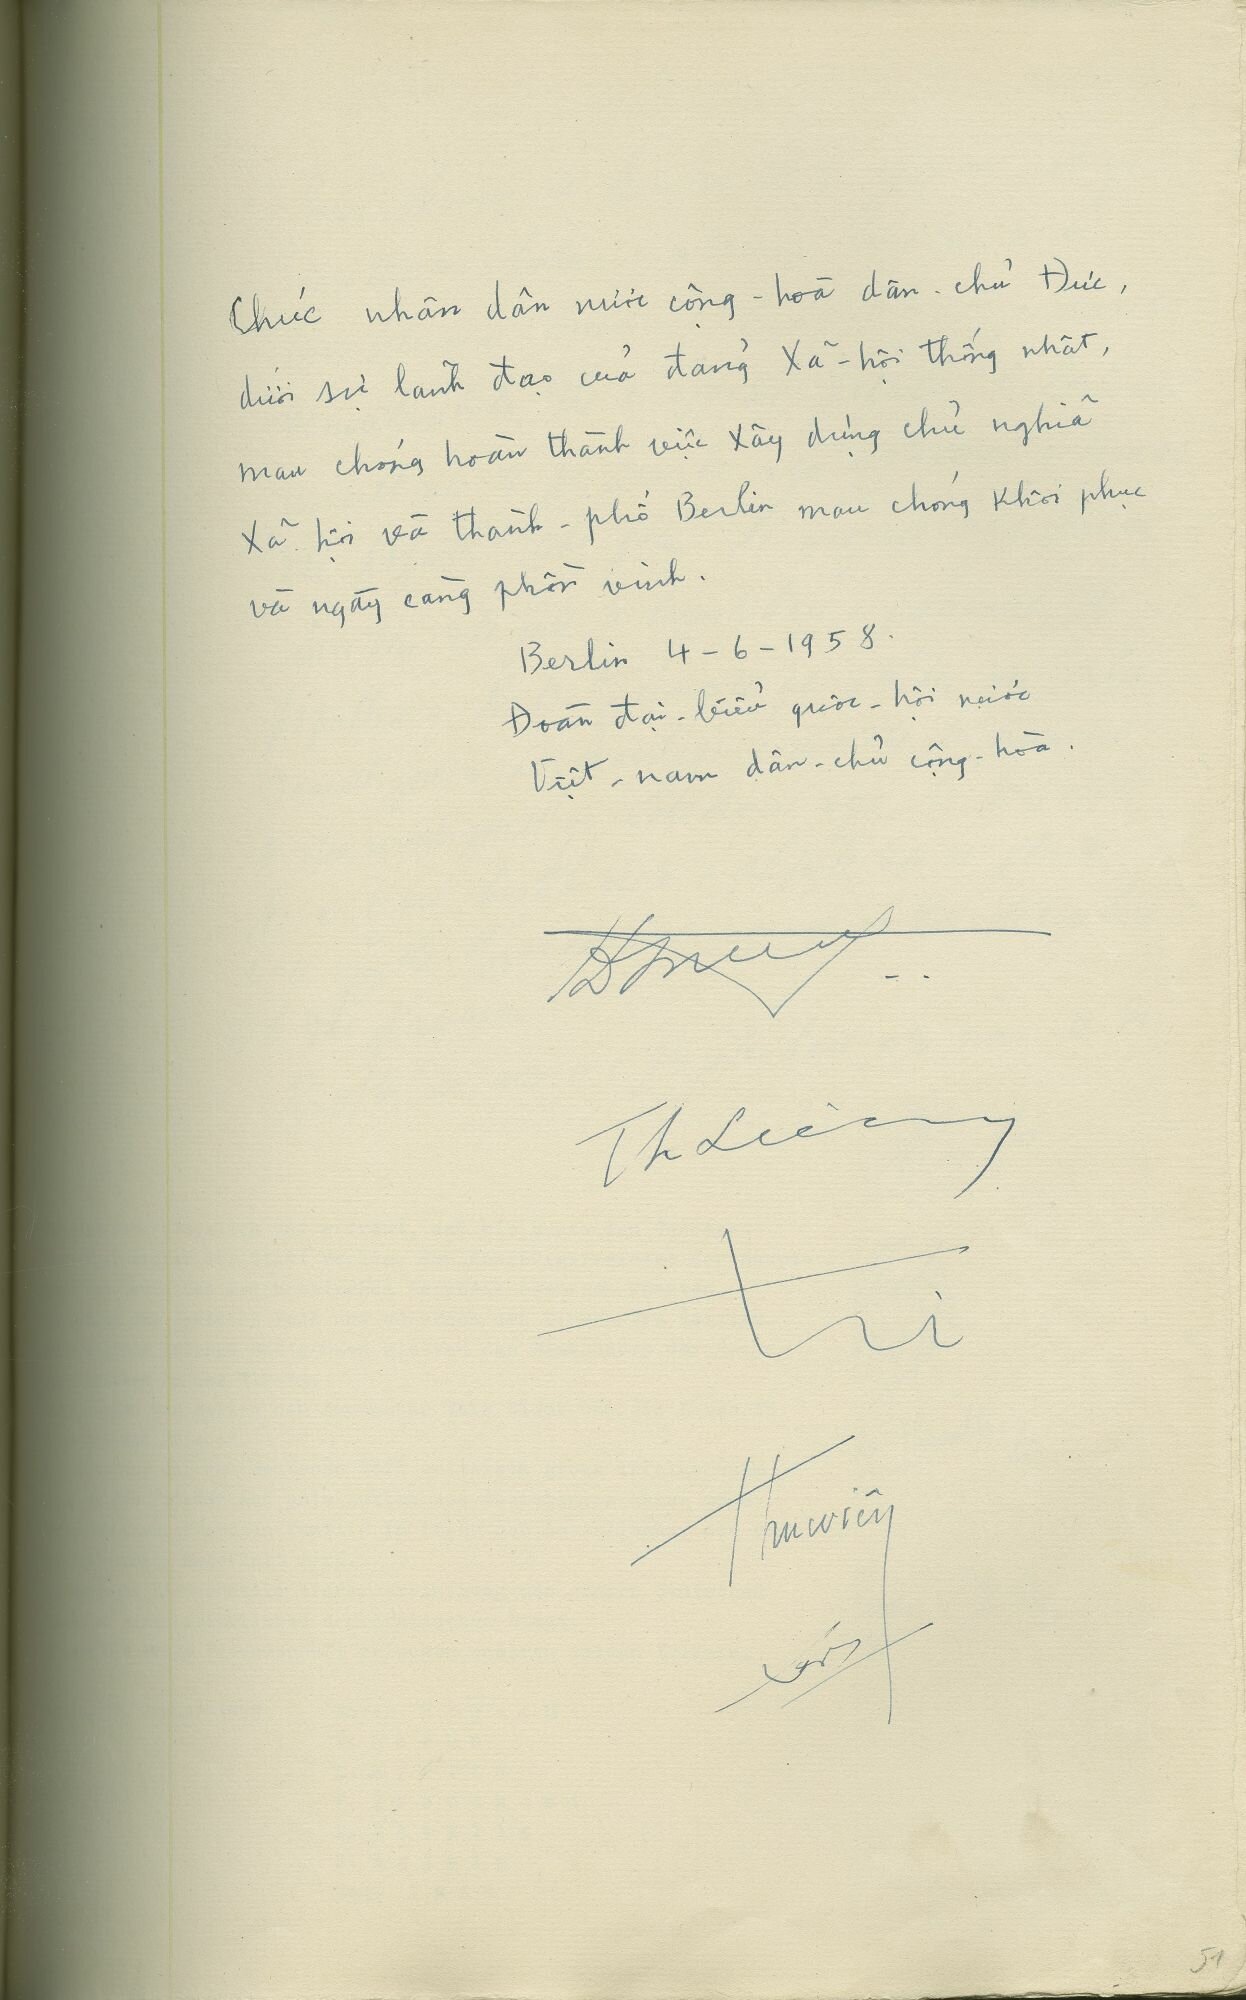 Chúc nhân dân nước cộng-hoà dân-chủ Đức,
dưới sự lãnh đạo của đảng Xã-hội thống nhất,
mau chóng hoàn thành việc xây dựng chủ nghĩa
Xã hội và thành-phố Berlin mau chóng khôi phục
và ngày càng phồn vinh.
Berlin 4-6-1958.
Đoàn đại-biểu quốc-hội nước
Việt-nam dân-chủ cộng-hòa.
Trí
Thuc viên
51